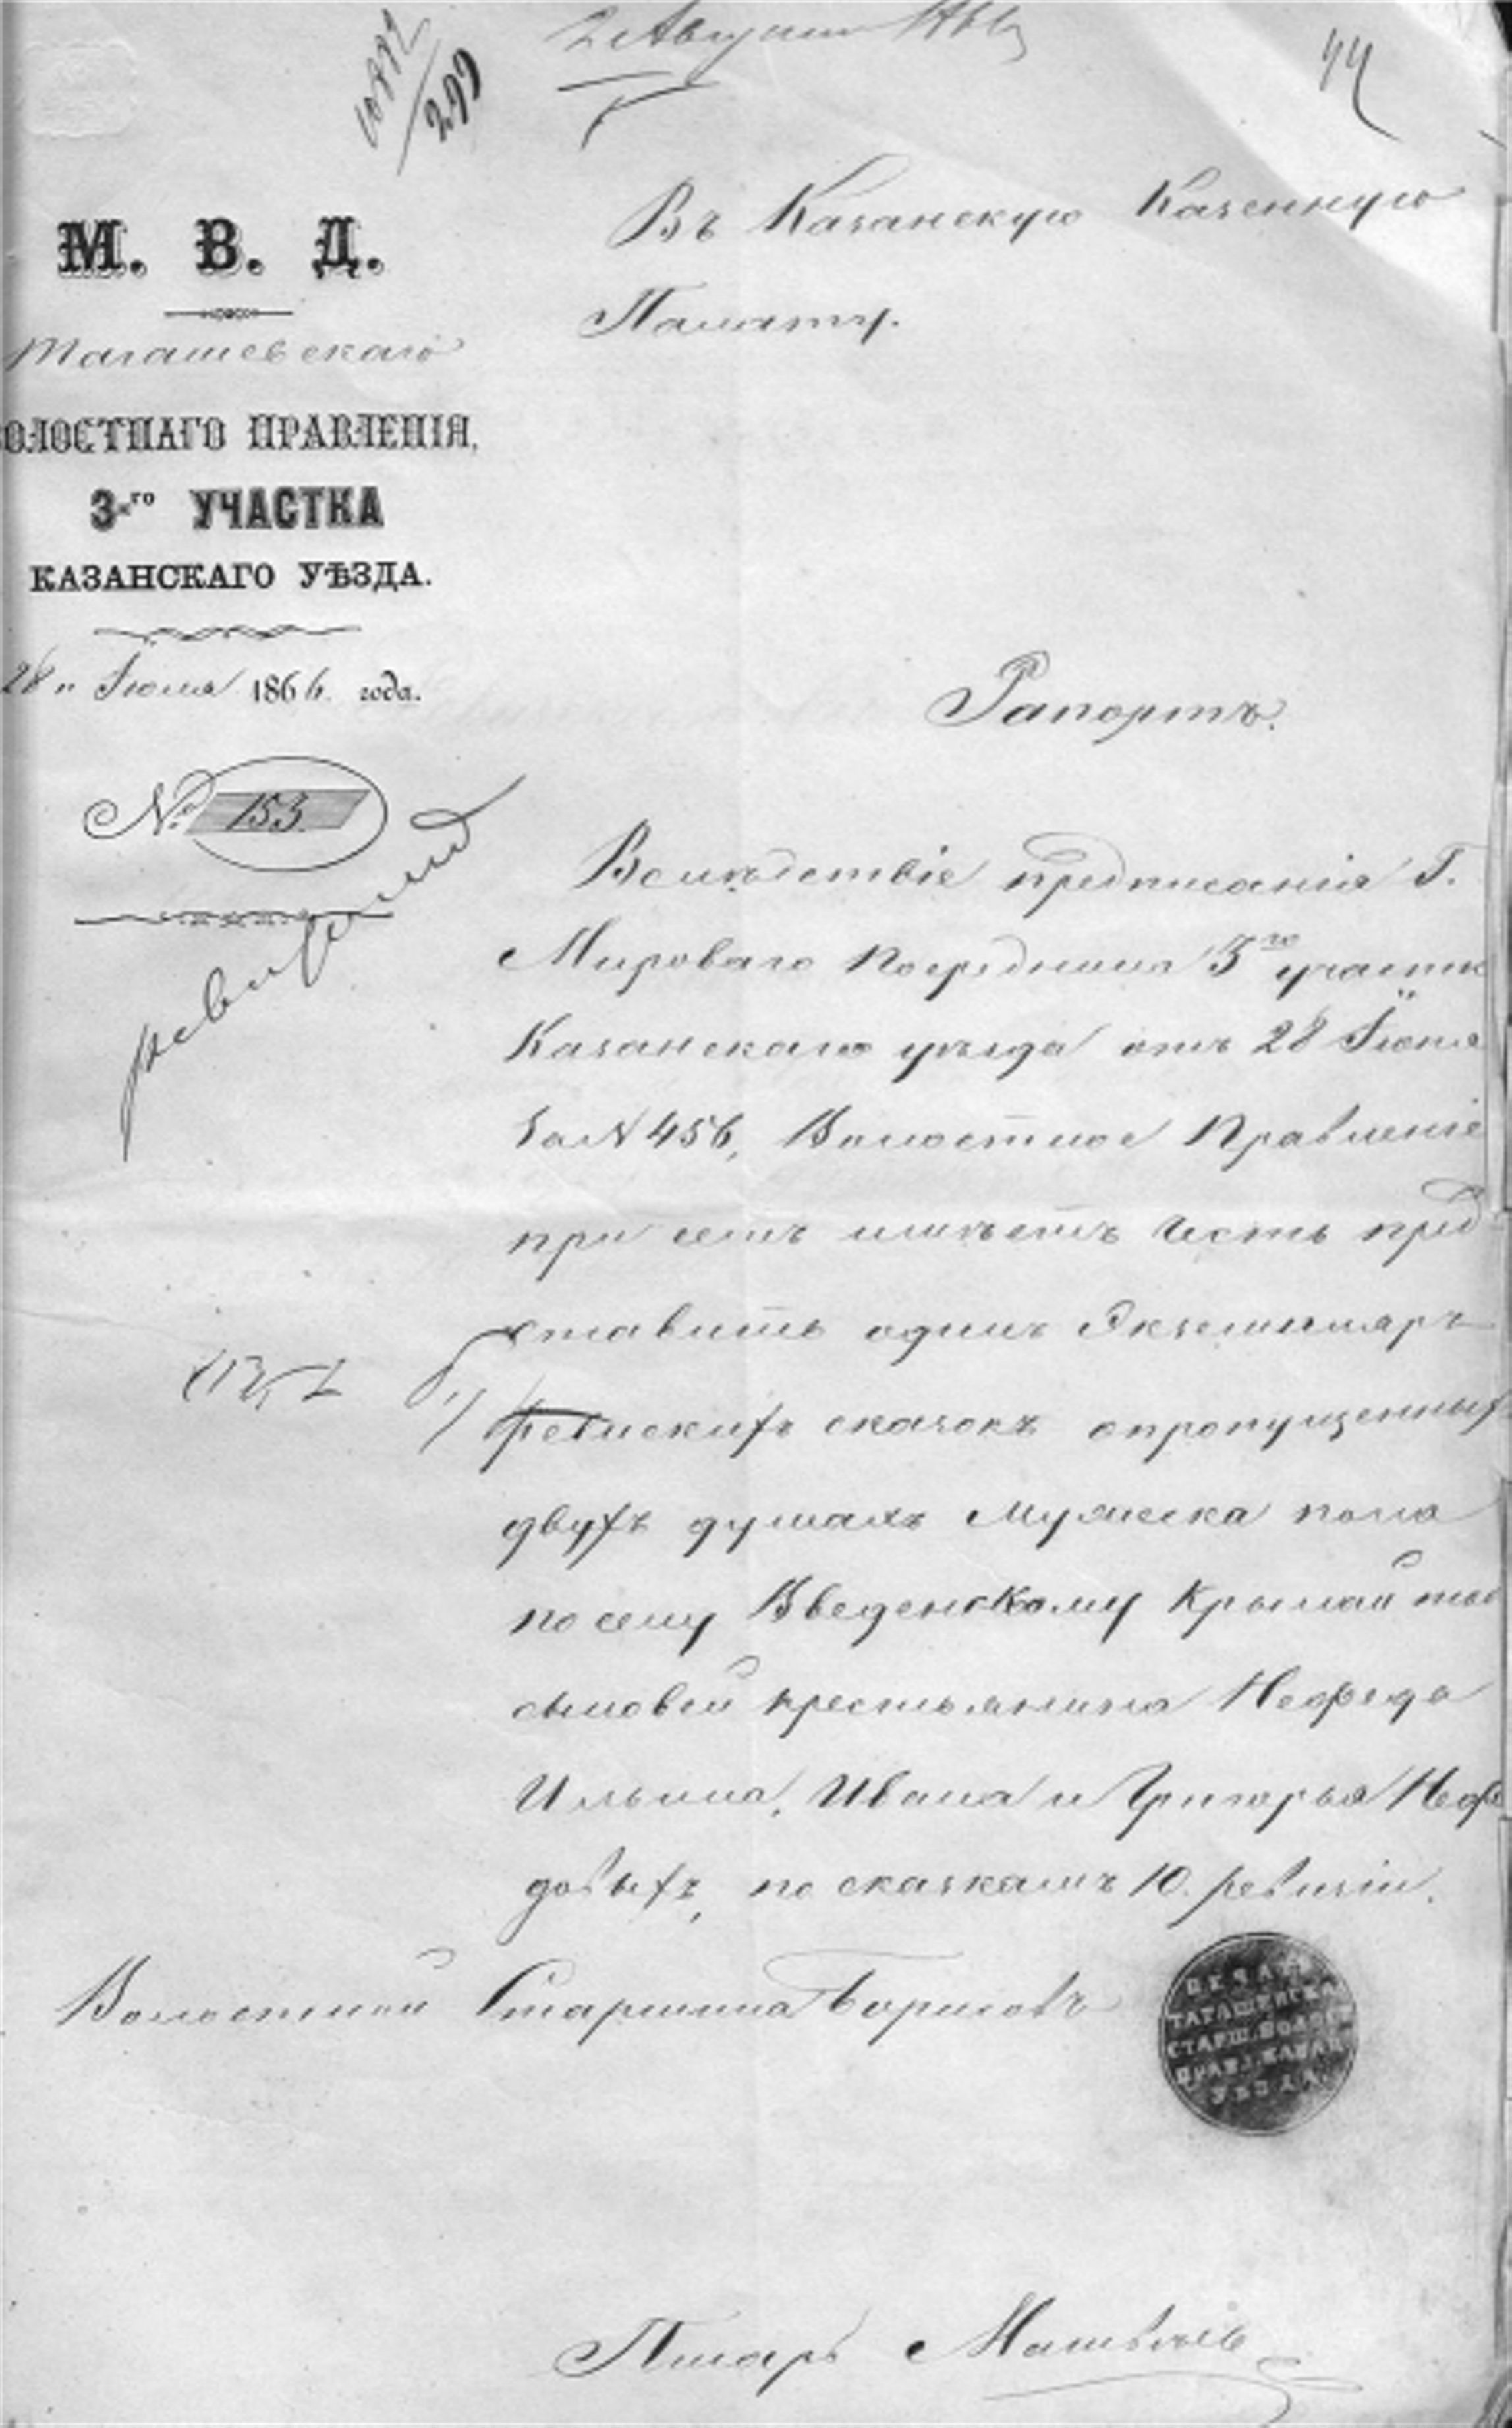 10882/299
2 Августа
44
М. В. Д.
Тагашевскаго
ОЛОСТНАГО ПРАВЛЕНІЯ,
3-го УЧАСТКА
КАЗАНСКАГО УѢЗДА.
28 " Іюля 1866 года.
№ 153
Въ Казанскую Казенную
Палату.
Рапортъ.
Вслѣдствіе предписанія Г.
Мироваго Посредника 3го участк
Казанскаго уѣзда отъ 28 Іюня
за N 456, Волостное Правленіе
при семъ имѣетъ честь пред
ставить одинъ Экземпляръ
ревискихъ сказокъ опропущенных
двухъ душахъ мужеска пола
по селу Введенскому Крылай тож
сыновей крестьянина Нефеда
Ильина, Ивана и Григорья Нефе
довыхъ, по сказкамъ 10 ревизіи.
Волостной Старшина Борисовъ
ПЕЧАТ
ТАГАШЕВСКА
СТАРШ. ВОЛОС
ПРАВЛ. КАЗАН
УѢЗДА
Писарь Матвѣевъ